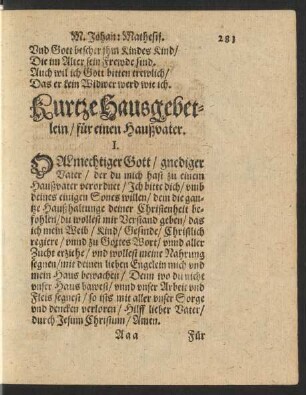 M. Johan: Mathesij. 281
Vnd Gott bescher jhm Kindes Kind/
Die im Alter sein Frewde sind.
Auch wil ich Gott bitten trewlich/
Das er kein Widwer werd wie ich.
Kurtze Hausgebet-
lein/ für einen Haußvater.
I.
O Almechtiger Gott/ gnediger
Vater/ der du mich hast zu einem
Haußvater verordnet/ Ich bitte dich/ vmb
deines einigen Sones willen/ dem die gan-
tze Haußhaltunge deiner Christenheit be-
fohlen/ du wollest mir Verstand geben/ das
ich mein Weib/ Kind/ Gesinde/ Christlich
regiere/ vnnd zu Gottes Wort/ vnnd aller
Zucht erziehe/ vnd wollest meine Nahrung
segnen/ mit deinen lieben Engelein mich vnd
mein Haus bewachen/ Denn wo du nicht
vnser Haus bawest/ vnnd vnser Arbeit vnd
Fleis segnest/ so ists mit aller vnser Sorge
vnd dencken verloren/ Hilff lieber Vater/
durch Jesum Christum/ Amen.
A a a Für